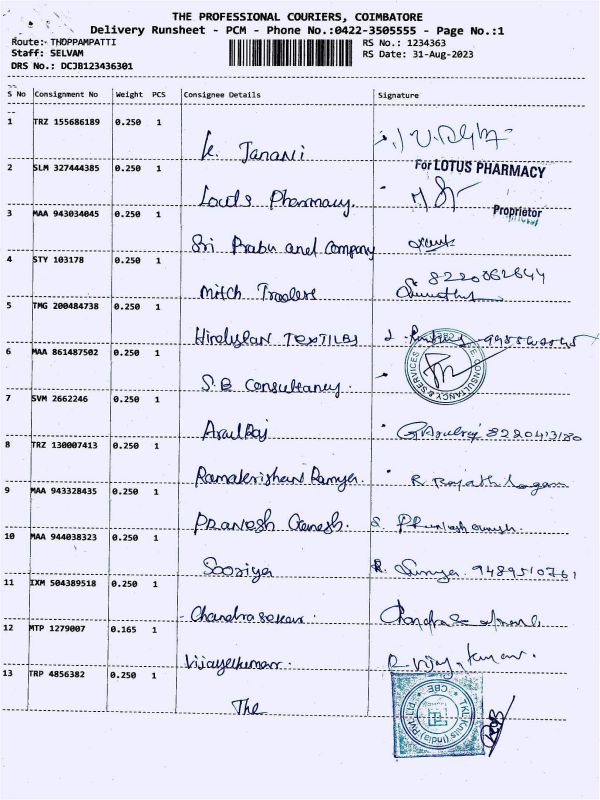 THE PROFESSIONAL COURIERS, COIMBATORE
Delivery Runsheet - PCM - Phone No.:0422-3505555 - Page No.:1
Route:- THOPPAMPATTI RS No.: 1234363
Staff: SELVAM RS Date: 31-Aug-2023
DRS No.: DCJB123436301
S No Consignment No Weight PCS Consignee Details Signature
1 TRZ 155686189 0.250 1
K. Janani
2 SLM 327444385 0.250 1
For LOTUS PHARMACY
Pharmacy.
Proprietor
3 MAA 943034045 0.250 1
Sri Prabu and Company
4 STY 103178 0.250 1
8220062644
Mitch Traders
5 TMG 200484738 0.250 1
Hindustan TEXTILES
6 MAA 861487502 0.250 1
CONSULTANCY & SERVICES
S.B Consultancy.
7 SVM 2662246 0.250 1
ArulRaj
8 TRZ 130007413 0.250 1
Ramakrishnan Ramya.
9 MAA 943328435 0.250 1
PRANESH Ganesh.
10 MAA 944038323 0.250 1
Sooriya 9489510761
11 IXM 504389518 0.250 1
Chandrasekar.
12 MTP 1279007 0.165 1
Vijayakumar. R. Vijayakumar.
13 TRP 4856382 0.250 1
The
TKL Knits (India) Pvt. Ltd. CBE